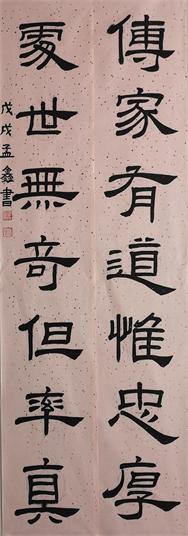 傳家有道惟忠厚
處世無奇但率真
戊戌孟鑫書